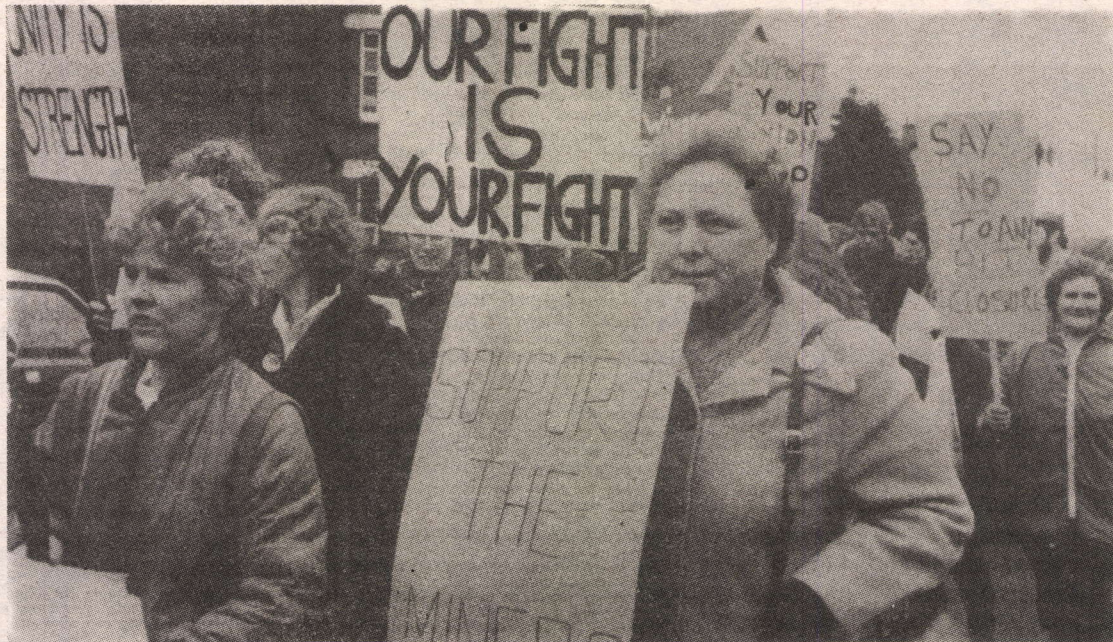 UNITY IS
STRENGTH
OUR FIGHT
IS
YOUR FIGHT
SUPPORT
YOUR
SAY
NO
TO ANY
PIT
CLOSURE
SUPPORT
THE
MINERS